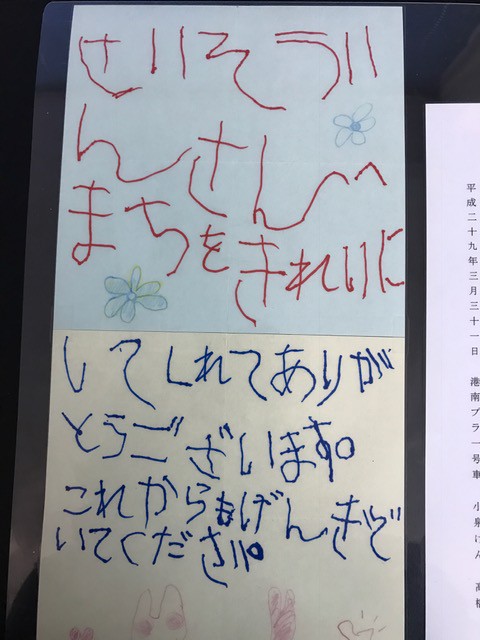 せいそうい
んさんへ
まちをきれいに
してくれてありが
とうございます。
これからもげんきで
いてください。
平成二十九年三月三十一日 港南プラ一号車 小泉けん